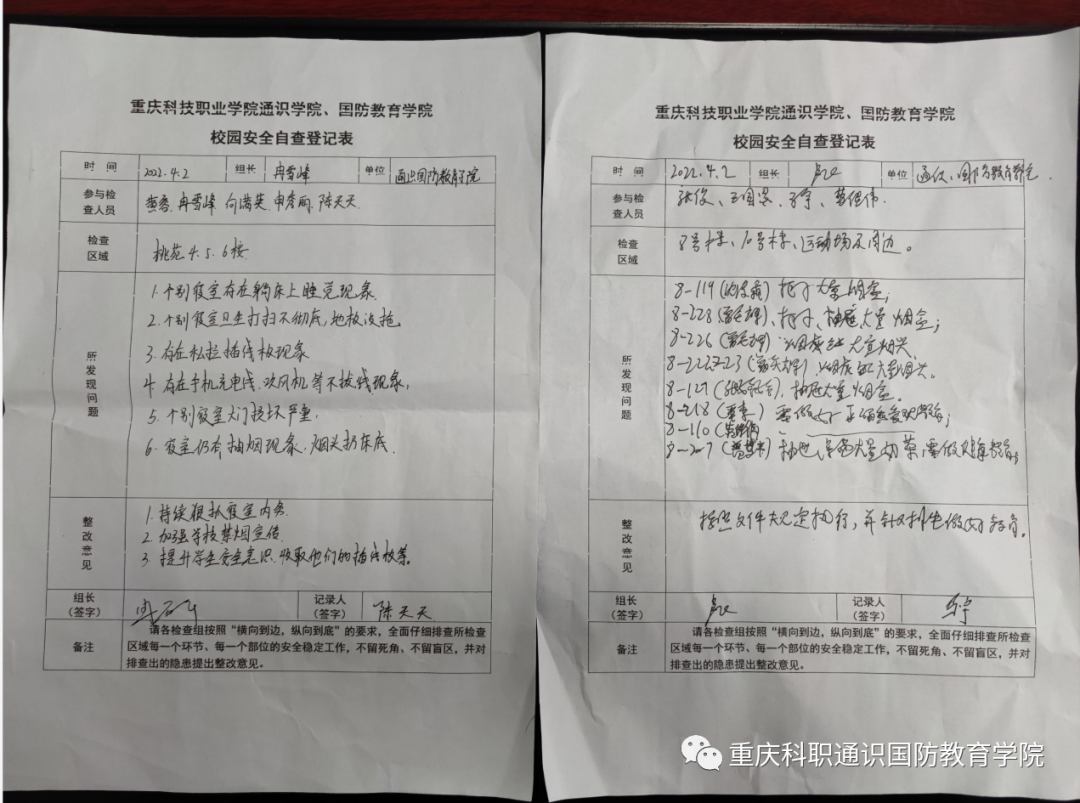 重庆科技职业学院通识学院、国防教育学院
校园安全自查登记表
时 间 2022.4.2 组长 冉雪峰 单位 通识国防教育学院
参与检查人员 冉雪峰 向满英 申秀丽 陈天天
检查区域 桃苑4.5.6楼
所发现问题
1.个别寝室存在躺床上睡觉现象
2.个别寝室卫生打扫不彻底,地板没拖
3.存在私拉插线板现象
4.存在手机充电线、吹风机等不拔线现象,
5.个别寝室大门损坏严重.
6.寝室仍有抽烟现象,烟头扔床底.
整改意见
1.持续狠抓寝室内务
2.加强学校禁烟宣传
3.提升学生安全意识,收取他们的插线板等.
组长(签字) 记录人(签字) 陈天天
备注 请各检查组按照“横向到边,纵向到底”的要求,全面仔细排查所检查
区域每一个环节、每一个部位的安全稳定工作,不留死角、不留盲区,并对
排查出的隐患提出整改意见。
重庆科技职业学院通识学院、国防教育学院
校园安全自查登记表
时 间 2022.4.2 组长 单位 通识、国防教育学院
参与检查人员 张俊、
检查区域 8号楼、10号楼、运动场及周边。
所发现问题
8-119 大量烟盒;
8-228 柜子、抽屉大量烟盒;
8-226 大量烟头.
8-222 大量烟头.
8-129 抽屉大量烟盒.
8-218
8-110
8-207
整改意见
按照文件规定执行,并针对学生做好教育。
组长(签字) 记录人(签字)
备注 请各检查组按照“横向到边,纵向到底”的要求,全面仔细排查所检查
区域每一个环节、每一个部位的安全稳定工作,不留死角、不留盲区,并对
排查出的隐患提出整改意见。
重庆科职通识国防教育学院